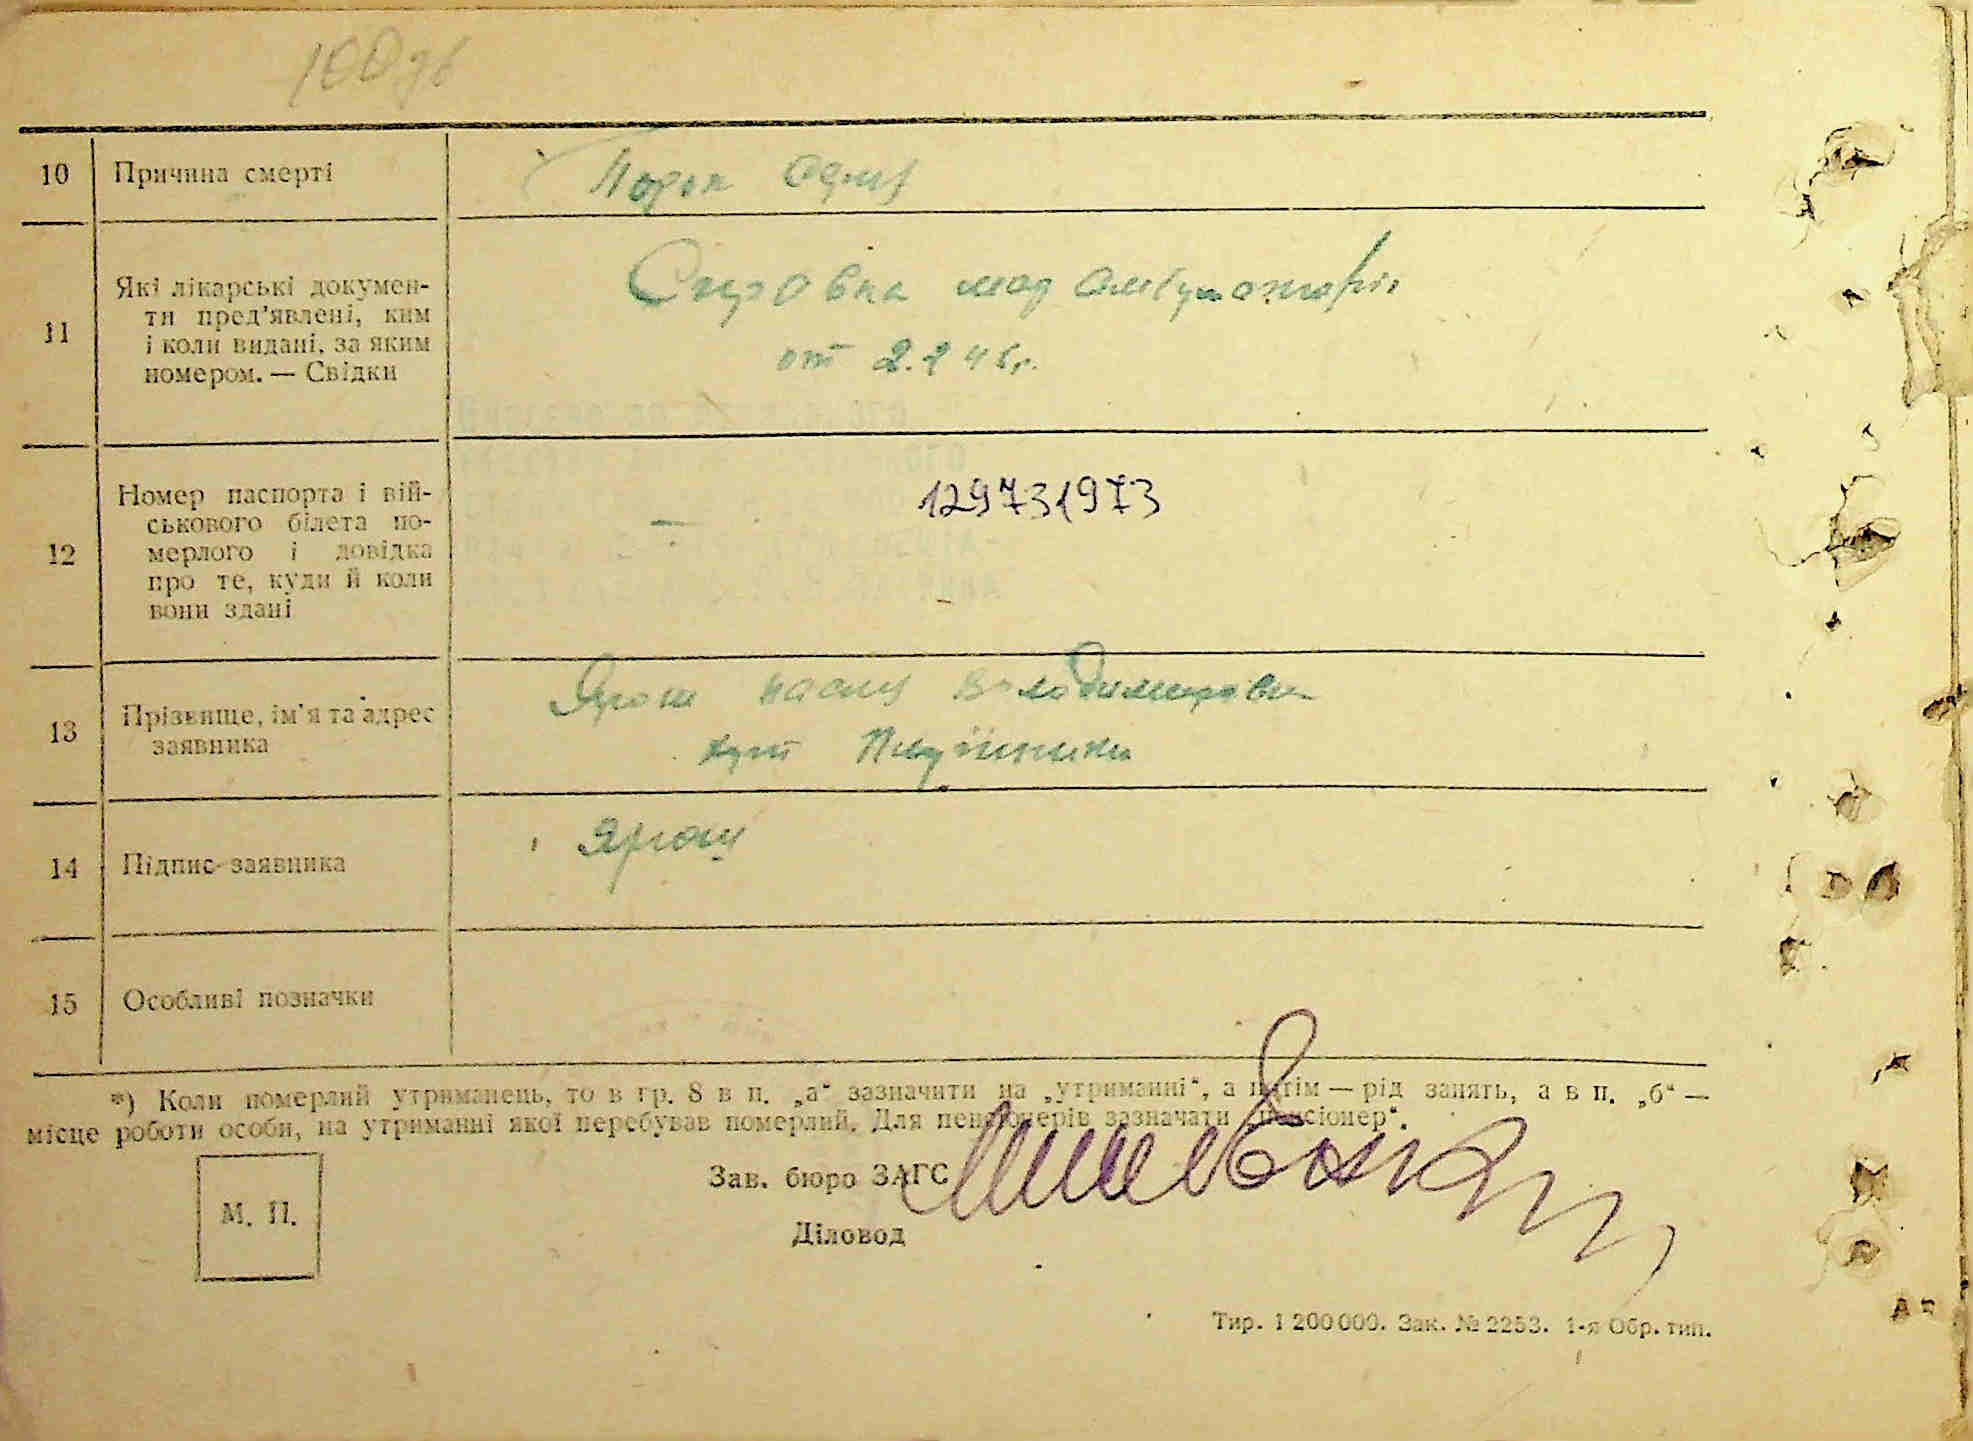 100
10 Причина смерті
Порок
11 Які лікарські докумен-
ти пред'явлені, ким
і коли видані, за яким
номером. — Свідки
Справка мед амбулаторії
от 2.2 45г.
12 Номер паспорта і вій-
ськового білета по-
мерлого і довідка
про те, куди й коли
вони здані
—
129731973
13 Прізвище, ім'я та адрес
заявника
Ярош Володимировна
хут
14 Підпис заявника
Ярош
15 Особливі позначки
*) Коли померлий утриманець, то в гр. 8 в п. „а“ зазначити на „утриманні“, а потім — рід занять, а в п. „б“ —
місце роботи особи, на утриманні якої перебував померлий. Для пенсіонерів зазначати „пенсіонер“.
Зав. бюро ЗАГС
М. П.
Діловод
Тир. 1 200 000. Зак. № 2253. 1-я Обр. тип.